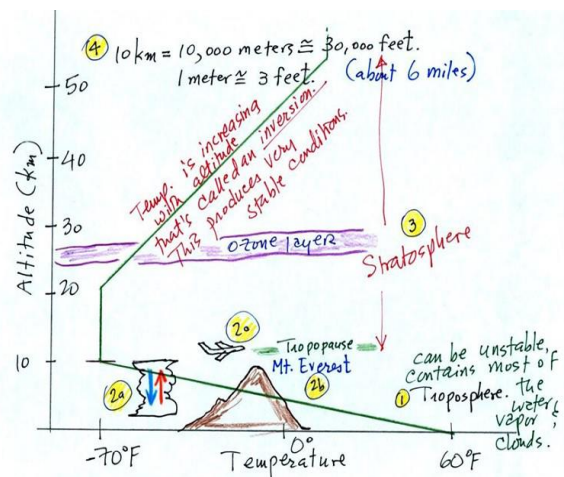 4 10 km = 10,000 meters ≅ 30,000 feet.
1 meter ≅ 3 feet. (about 6 miles)
50
Temp. is increasing
with altitude
that's called an inversion.
This produces very
stable conditions.
40
Altitude (km)
30
3
ozone layer
Stratosphere
20
2c
Tropopause
10
Mt. Everest
can be unstable,
contains most of
the
water
vapor &
clouds.
2a
2b
1 Troposphere.
-70°F
0°
60°F
Temperature